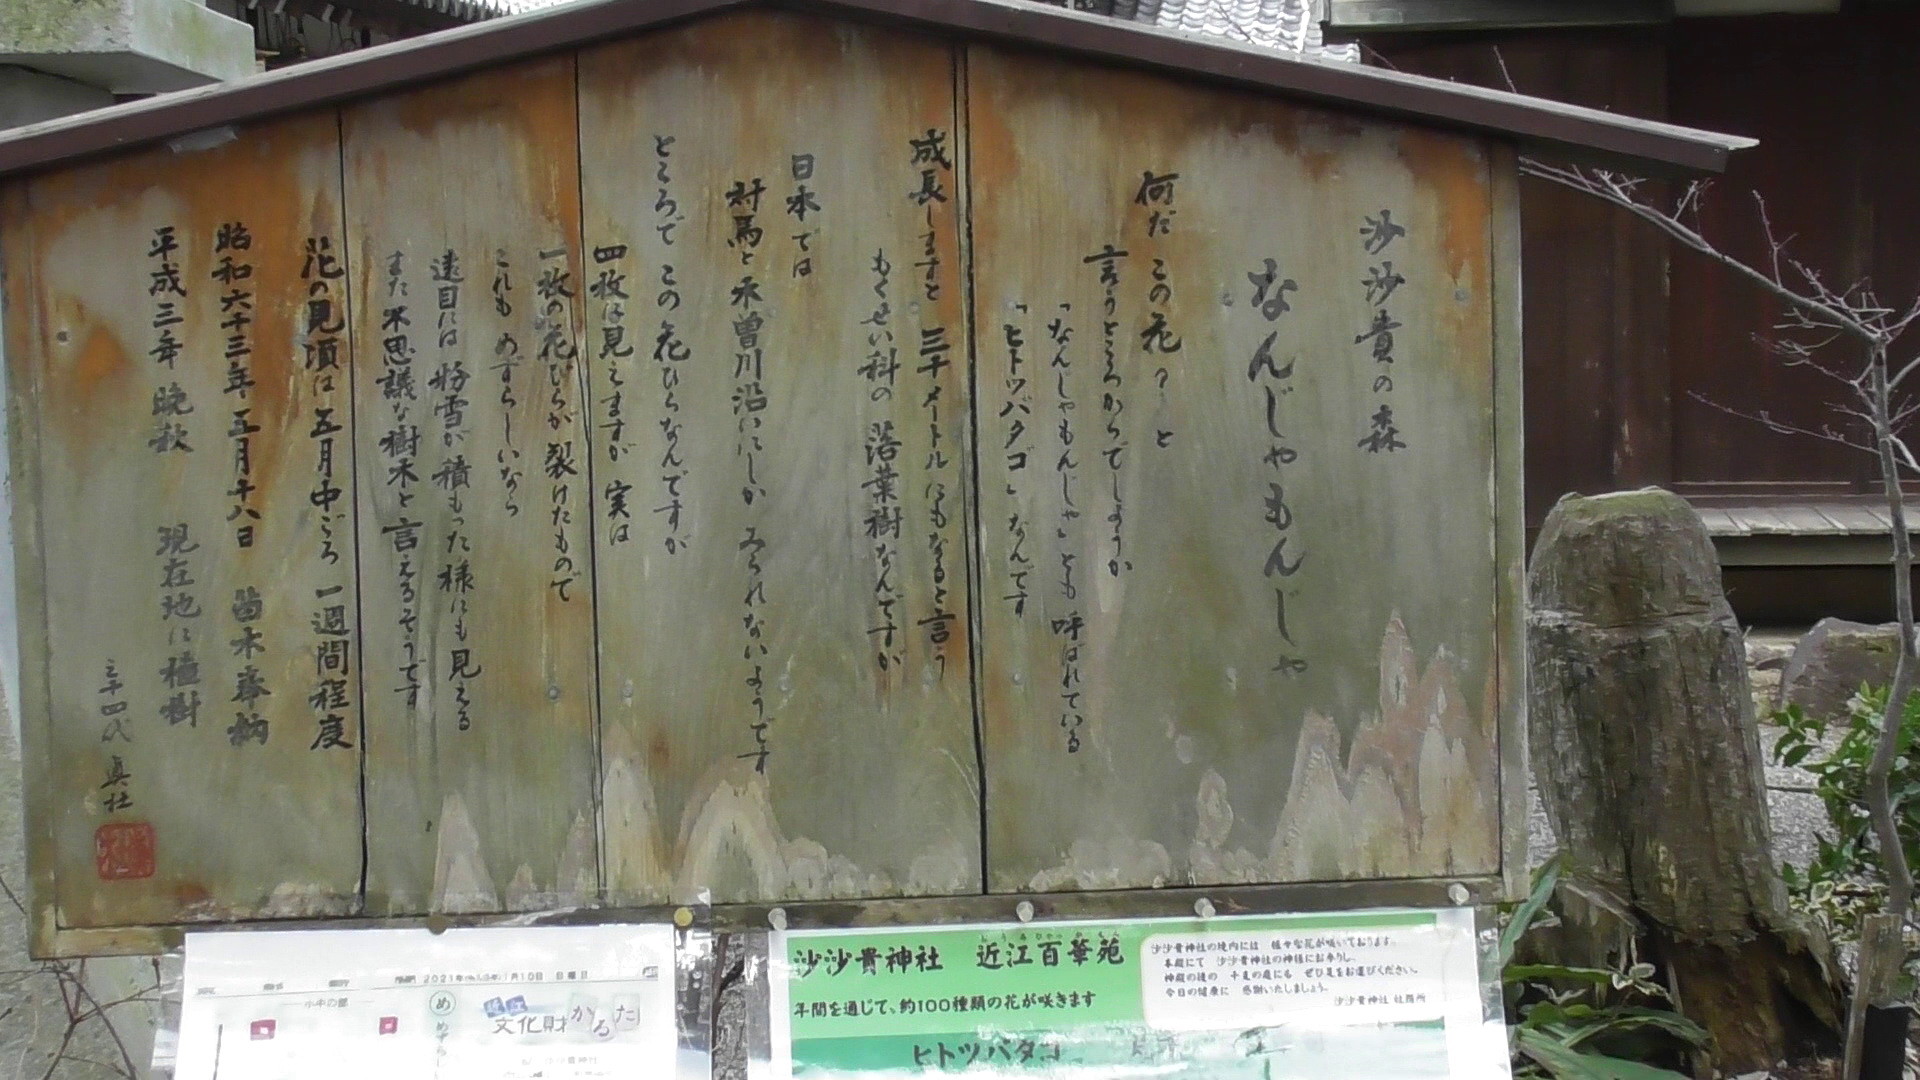 沙沙貴の森
なんじゃもんじゃ
何だ この花？と
言うところからでしょうか
「なんじゃもんじゃ」とも 呼ばれている
「ヒトツバタゴ」なんです
成長しますと 三十メートルにもなると言う
もくせい科の 落葉樹なんですが
日本では
対馬と木曽川沿いにしか みられないようです
ところで この花ひらなんですが
四枚に見えますが 実は
一枚の花びらが 裂けたもので
これも めずらしいなら
遠目には 粉雪が積もった様にも見える
また不思議な樹木と言えるそうです
花の見頃は 五月中ごろ 一週間程度
昭和六十三年 五月十八日 苗木奉納
平成三年 晩秋 現在地に植樹
三十四代 真社
2021年 1月10日 日曜日
め
文化財かるた
沙沙貴神社 近江百華苑
年間を通じて、約100種類の花が咲きます
沙沙貴神社の境内には 様々な花が咲いております。
本殿にて 沙沙貴神社の神様にお参りし、
神殿の後の 十支の庭にも ぜひ足をお運びください。
今日の健康に 感謝いたしましょう。
沙沙貴神社 社務所
ヒトツバタゴ